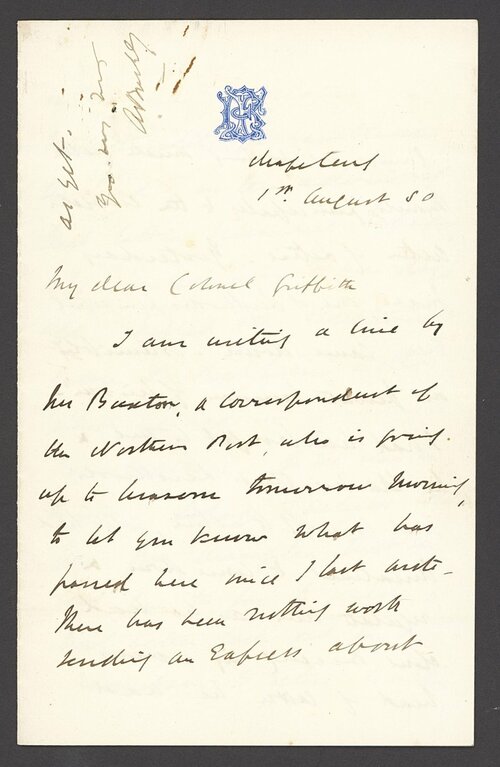 as yet.
Yrs. ever
Mafeteng
1st August 80
My dear Colonel Griffith
I am writing a line by
Mr Buxton, a Correspondent of
the Northern Post, who is going
up to Maseru tomorrow morning,
to let you know what has
passed here since I last wrote –
There has been nothing worth
sending an Express about